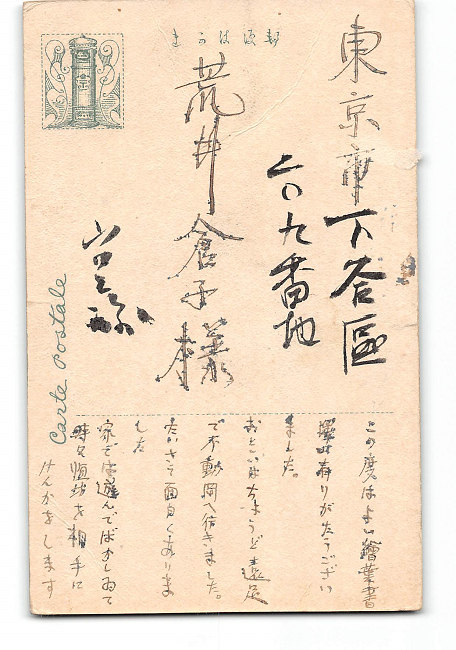 郵便はかき
東京市下谷區
二〇九番地
荒井倉子様
Carte Postale
この度はよい繪葉書
澤山有りがたうござい
ました。
おとゝひはちやうど遠足
で不動岡へ行きました。
たいさう面白くありま
した
家では遊んでばかしゐて
時々恒坊を相手に
けんかをします